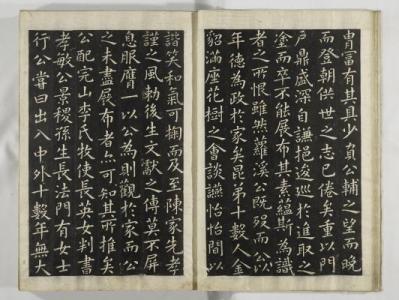 胄富有其具少負公輔之望而晚
而登朝供世之志已倦矣重以門
戶鼎盛深自謙挹逡巡於進取之
塗而卒不能展布其素蘊斯為識
者之所恨雖然蘿溪公既歿而公以
年德為政於家矣昆弟十數人金
貂滿座花樹之會談讌怡怡間以
諧笑和氣可掬而及至陳家先孝
謹之風勅後生文獻之傳莫不屏
息服膺一以公為則觀於家而公
之未盡展布者亦可知其所推矣
公配完山李氏牧使長英女判書
孝敏公景稷孫生長法門有女士
行公嘗曰出入中外十數年無大